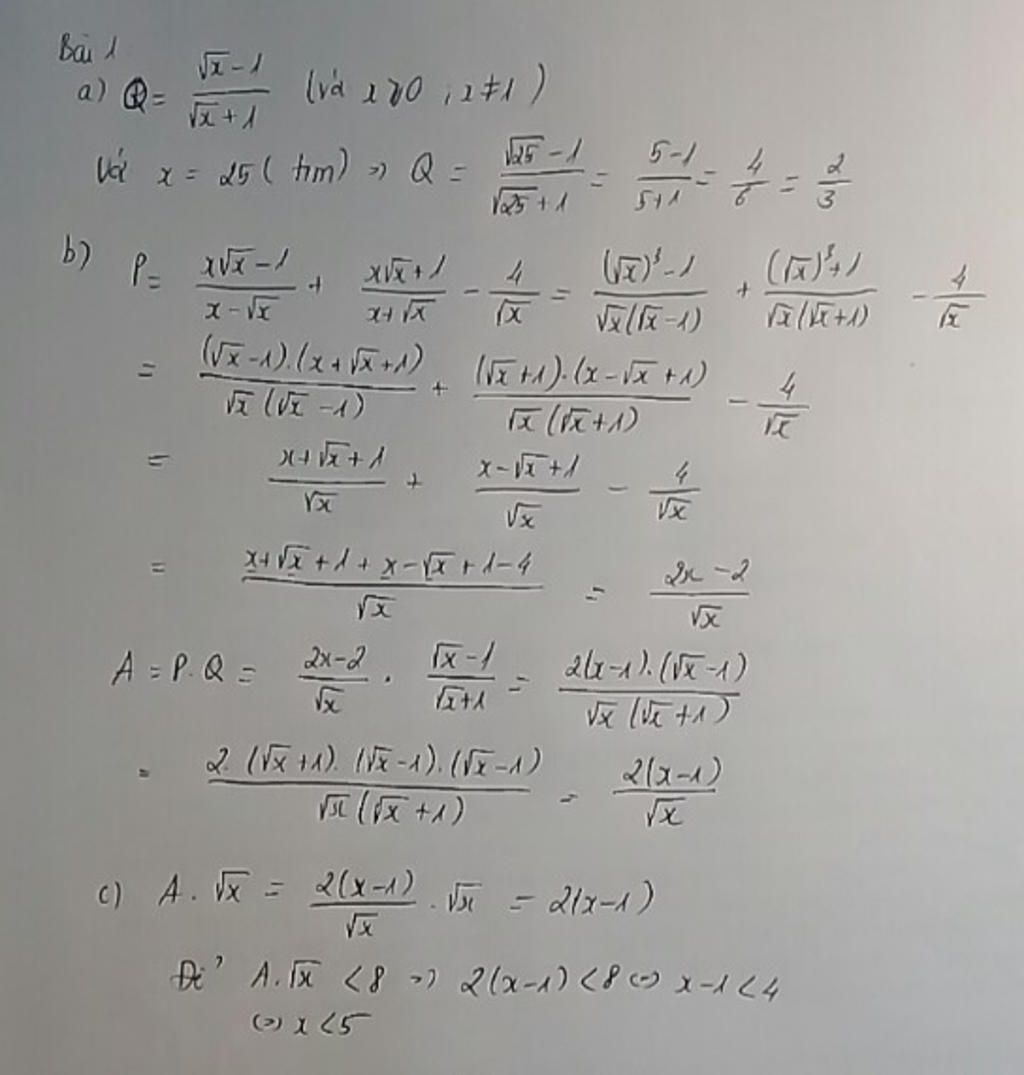 Bài 1
a) Q = (√x - 1)/(√x + 1) (với x ≥ 0 ; x ≠ 1)
Với x = 25 (tm) => Q = (√25 - 1)/(√25 + 1) = (5 - 1)/(5 + 1) = 4/6 = 2/3
b) P = (x√x - 1)/(x - √x) + (x√x + 1)/(x + √x) - 4/√x = ((√x)³ - 1)/(√x(√x - 1)) + ((√x)³ + 1)/(√x(√x + 1)) - 4/√x
= ((√x - 1).(x + √x + 1))/(√x(√x - 1)) + ((√x + 1).(x - √x + 1))/(√x(√x + 1)) - 4/√x
= (x + √x + 1)/√x + (x - √x + 1)/√x - 4/√x
= (x + √x + 1 + x - √x + 1 - 4)/√x = (2x - 2)/√x
A = P.Q = (2x - 2)/√x . (√x - 1)/(√x + 1) = (2(x - 1).(√x - 1))/(√x(√x + 1))
= (2.(√x + 1).(√x - 1).(√x - 1))/(√x(√x + 1)) = 2(x - 1)/√x
c) A.√x = 2(x - 1)/√x . √x = 2(x - 1)
Để A.√x < 8 => 2(x - 1) < 8 <=> x - 1 < 4
<=> x < 5